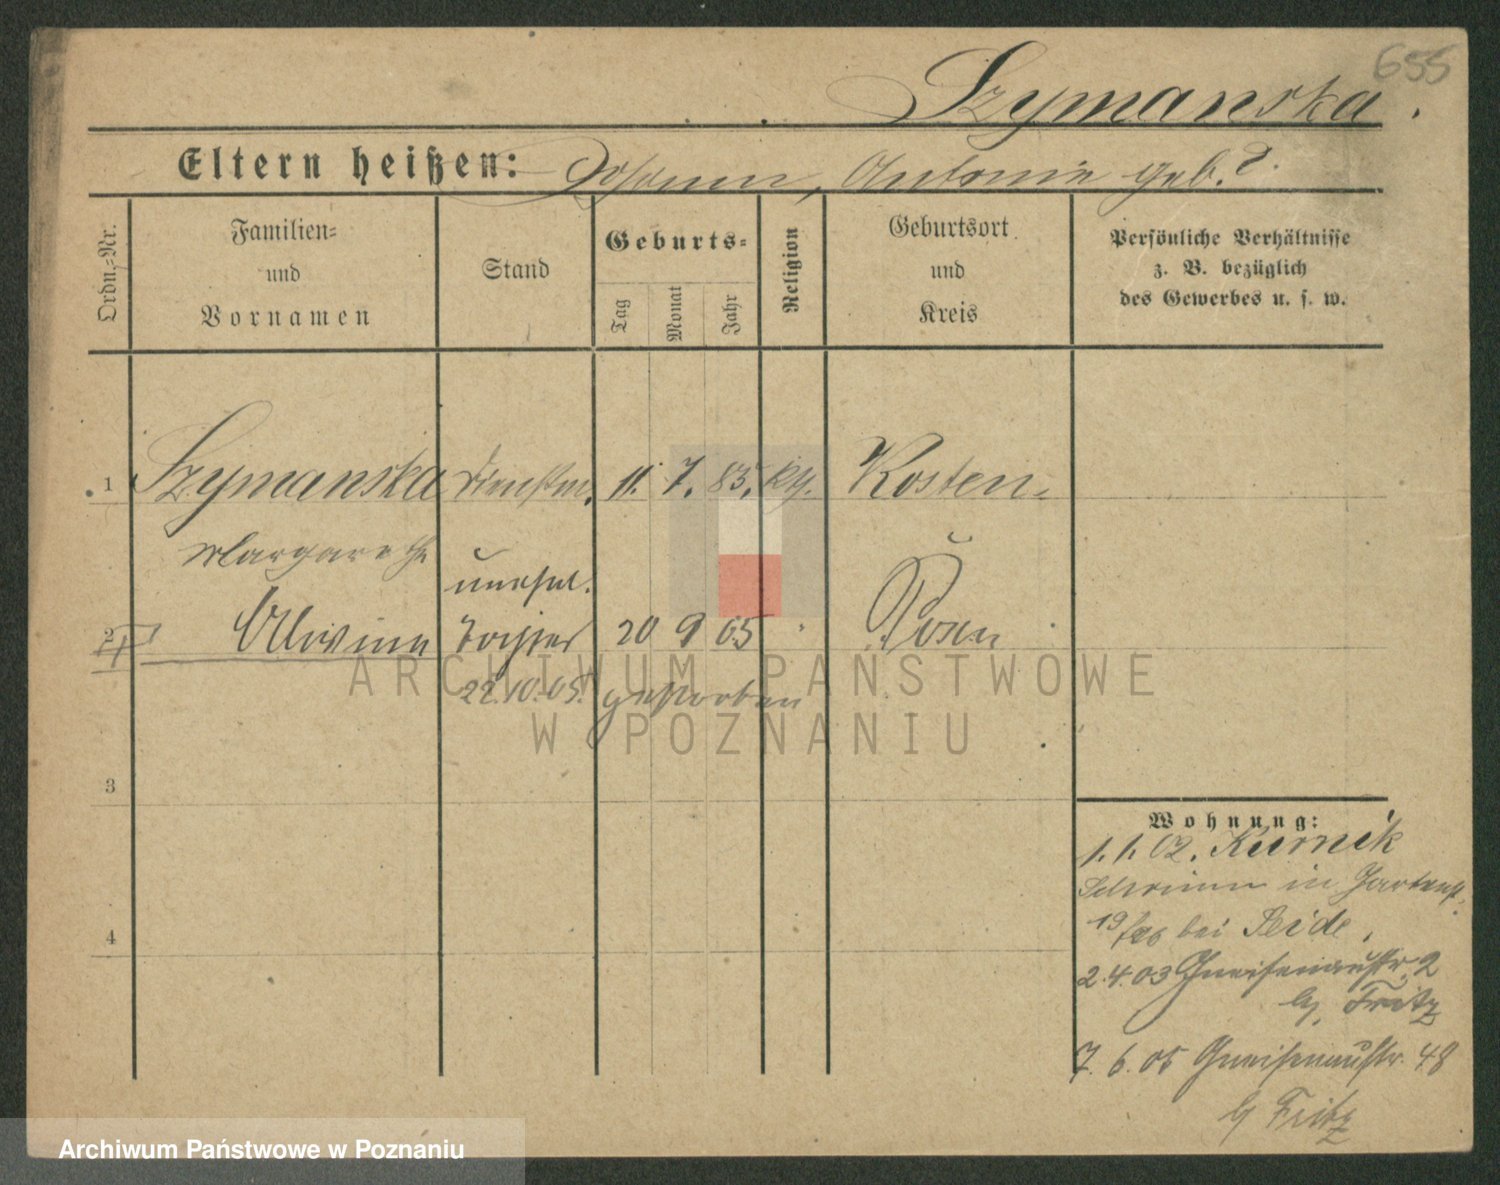 655
Szymanska.
Eltern heißen: Johann, Antonie geb. ?.
Ordn.-Nr.
Familien-
und
Vornamen
Stand
Geburts-
Tag
Monat
Jahr
Religion
Geburtsort
und
Kreis
Persönliche Verhältnisse
z. B. bezüglich
des Gewerbes u. s. w.
1 Szymanska Dienstm. 11. 7. 85. kth. Kosten.
Margarethe
unehel.
2 Tochter 20 9 05 " Posen
22.10.05. gestorben
3
4
Wohnung:
1. 1. 02. Kurnik
Schrimm in Gartenst.
bei Seide,
2.4.03 Gneisenaustr. 2
b/ Fritz
7. 6. 05 Gneisenaustr. 48
b/ Fritz
ARCHIWUM PAŃSTWOWE
W POZNANIU
Archiwum Państwowe w Poznaniu